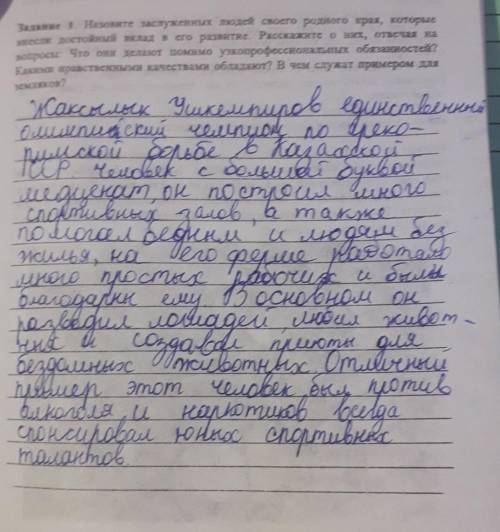 Задание 1. Назовите заслуженных людей своего родного края, которые
внесли достойный вклад в его развитие. Расскажите о них, отвечая на
вопросы: Что они делают помимо узкопрофессиональных обязанностей?
Какими нравственными качествами обладают? В чем служат примером для
земляков?
Жаксылык Ушкемпиров единственный
олимпийский чемпион по греко-
римской борьбе в Казахской
ССР. Человек с большой буквой
медценат, он построил много
спортивных залов, а также
помогал бедним и людям без
жилья, на его ферме работало
много простых рабочих и были
благодарны ему. В основном он
разводил лошадей, любил живот-
ных и создавал приюты для
бездомных животных. Отличный
пример этот человек был против
алкоголя и наркотиков всегда
спонсировал юных спортивных
талантов.